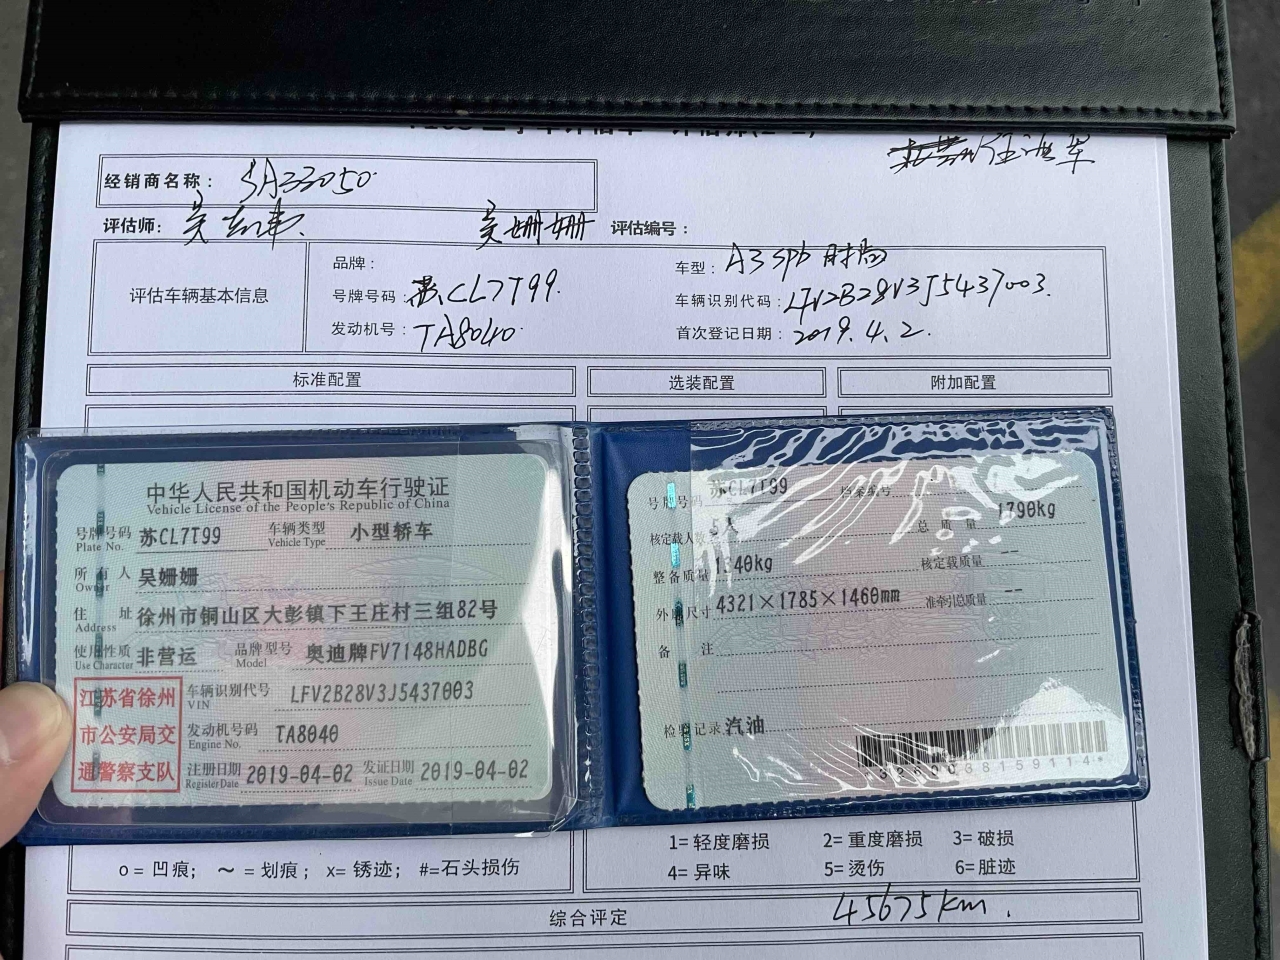 经销商名称: SA33050
评估师: 吴 吴姗姗 评估编号:
评估车辆基本信息
品牌: 车型: A3 spb 时尚
号牌号码: 苏CL7T99. 车辆识别代码: LFV2B28V3J5437003.
发动机号: TA8040 首次登记日期: 2019.4.2.
标准配置 选装配置 附加配置
中华人民共和国机动车行驶证
Vehicle License of the People's Republic of China
号牌号码 苏CL7T99 车辆类型 小型轿车
Plate No. Vehicle Type
所有人 吴姗姗
Owner
住址 徐州市铜山区大彭镇下王庄村三组82号
Address
使用性质 非营运 品牌型号 奥迪牌FV7148HADBG
Use Character Model
江苏省徐州
市公安局交
通警察支队
车辆识别代号 LFV2B28V3J5437003
VIN
发动机号码 TA8040
Engine No.
注册日期 2019-04-02 发证日期 2019-04-02
Register Date Issue Date
号牌号码 苏CL7T99 档案编号
核定载人数 5人 总质量 1790kg
整备质量 1340kg 核定载质量 --
外廓尺寸 4321×1785×1460mm 准牵引总质量 --
备注
检验记录 汽油
o= 凹痕; ~ = 划痕; x= 锈迹; #=石头损伤
1= 轻度磨损 2= 重度磨损 3= 破损
4= 异味 5= 烫伤 6= 脏迹
综合评定 45675km.